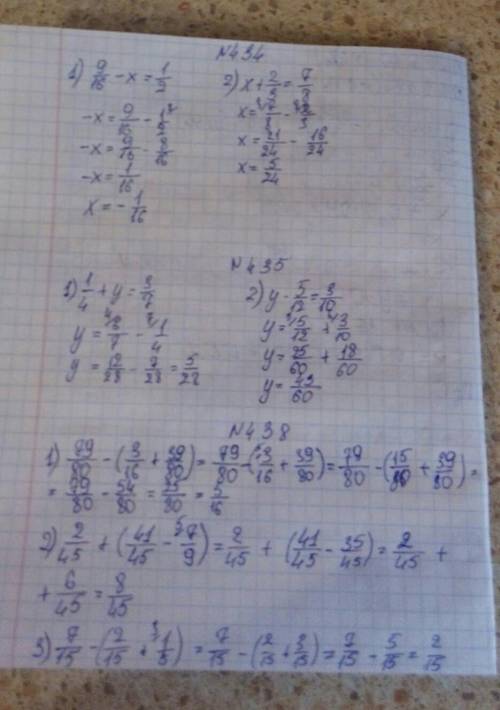 №434
1) 9/16 - x = 1/2
-x = 9/16 - 1/2
-x = 9/16 - 8/16
-x = 1/16
x = - 1/16
2) x + 2/3 = 7/8
x = 7/8 - 2/3
x = 21/24 - 16/24
x = 5/24
№435
1) 1/4 + y = 3/7
y = 3/7 - 1/4
y = 12/28 - 7/28 = 5/28
2) y - 5/12 = 3/10
y = 5/12 + 3/10
y = 25/60 + 18/60
y = 43/60
№438
1) 79/80 - (3/16 + 39/80) = 79/80 - (3/16 + 39/80) = 79/80 - (15/80 + 39/80) =
= 79/80 - 54/80 = 25/80 = 5/16
2) 2/45 + (41/45 - 7/9) = 2/45 + (41/45 - 35/45) = 2/45 +
+ 6/45 = 8/45
3) 7/15 - (2/15 + 1/5) = 7/15 - (2/15 + 3/15) = 7/15 - 5/15 = 2/15